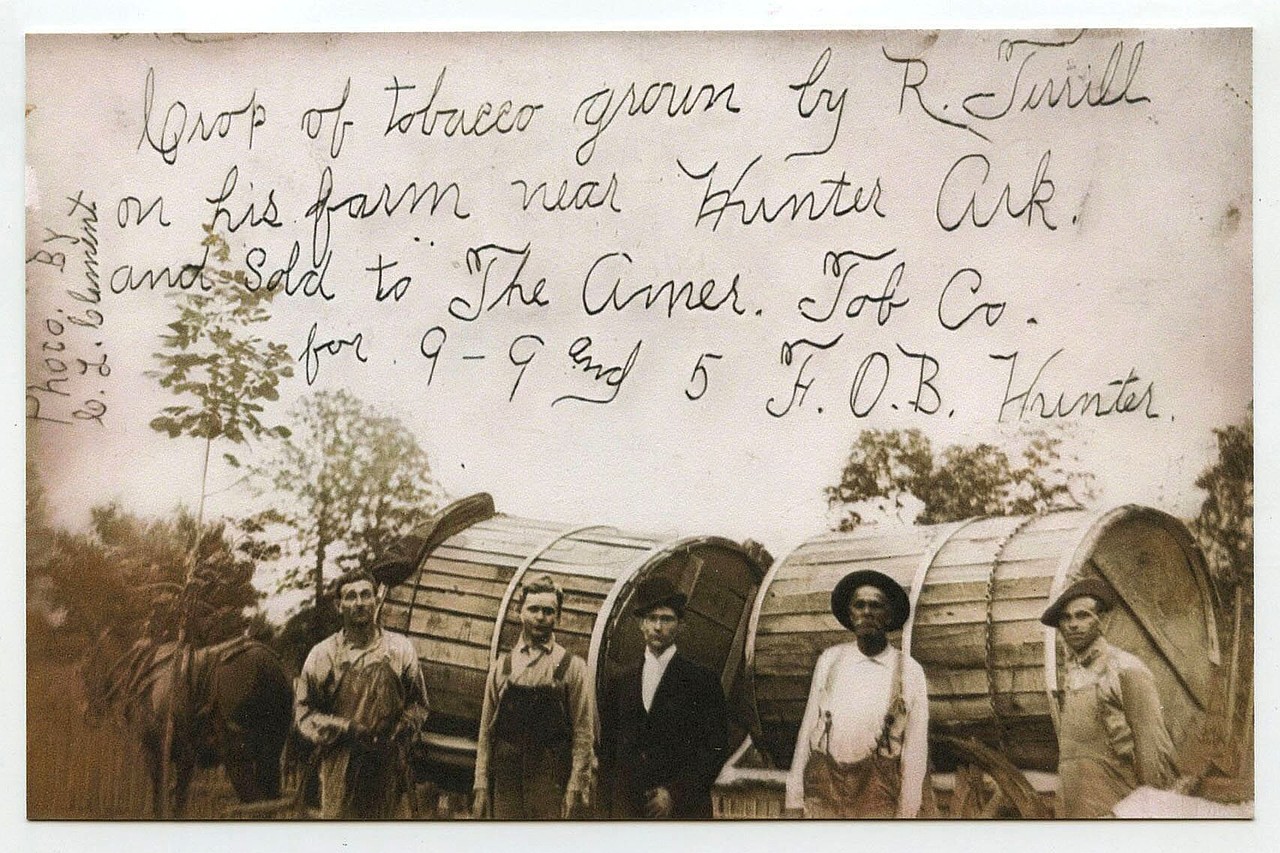 Crop of tobacco grown by R. Tirrill
on his farm near Hunter Ark.
and Sold to "The Amer. Tob Co.
for 9-9 and 5 F.O.B. Hunter.
Photo. BY
C. L. Clement